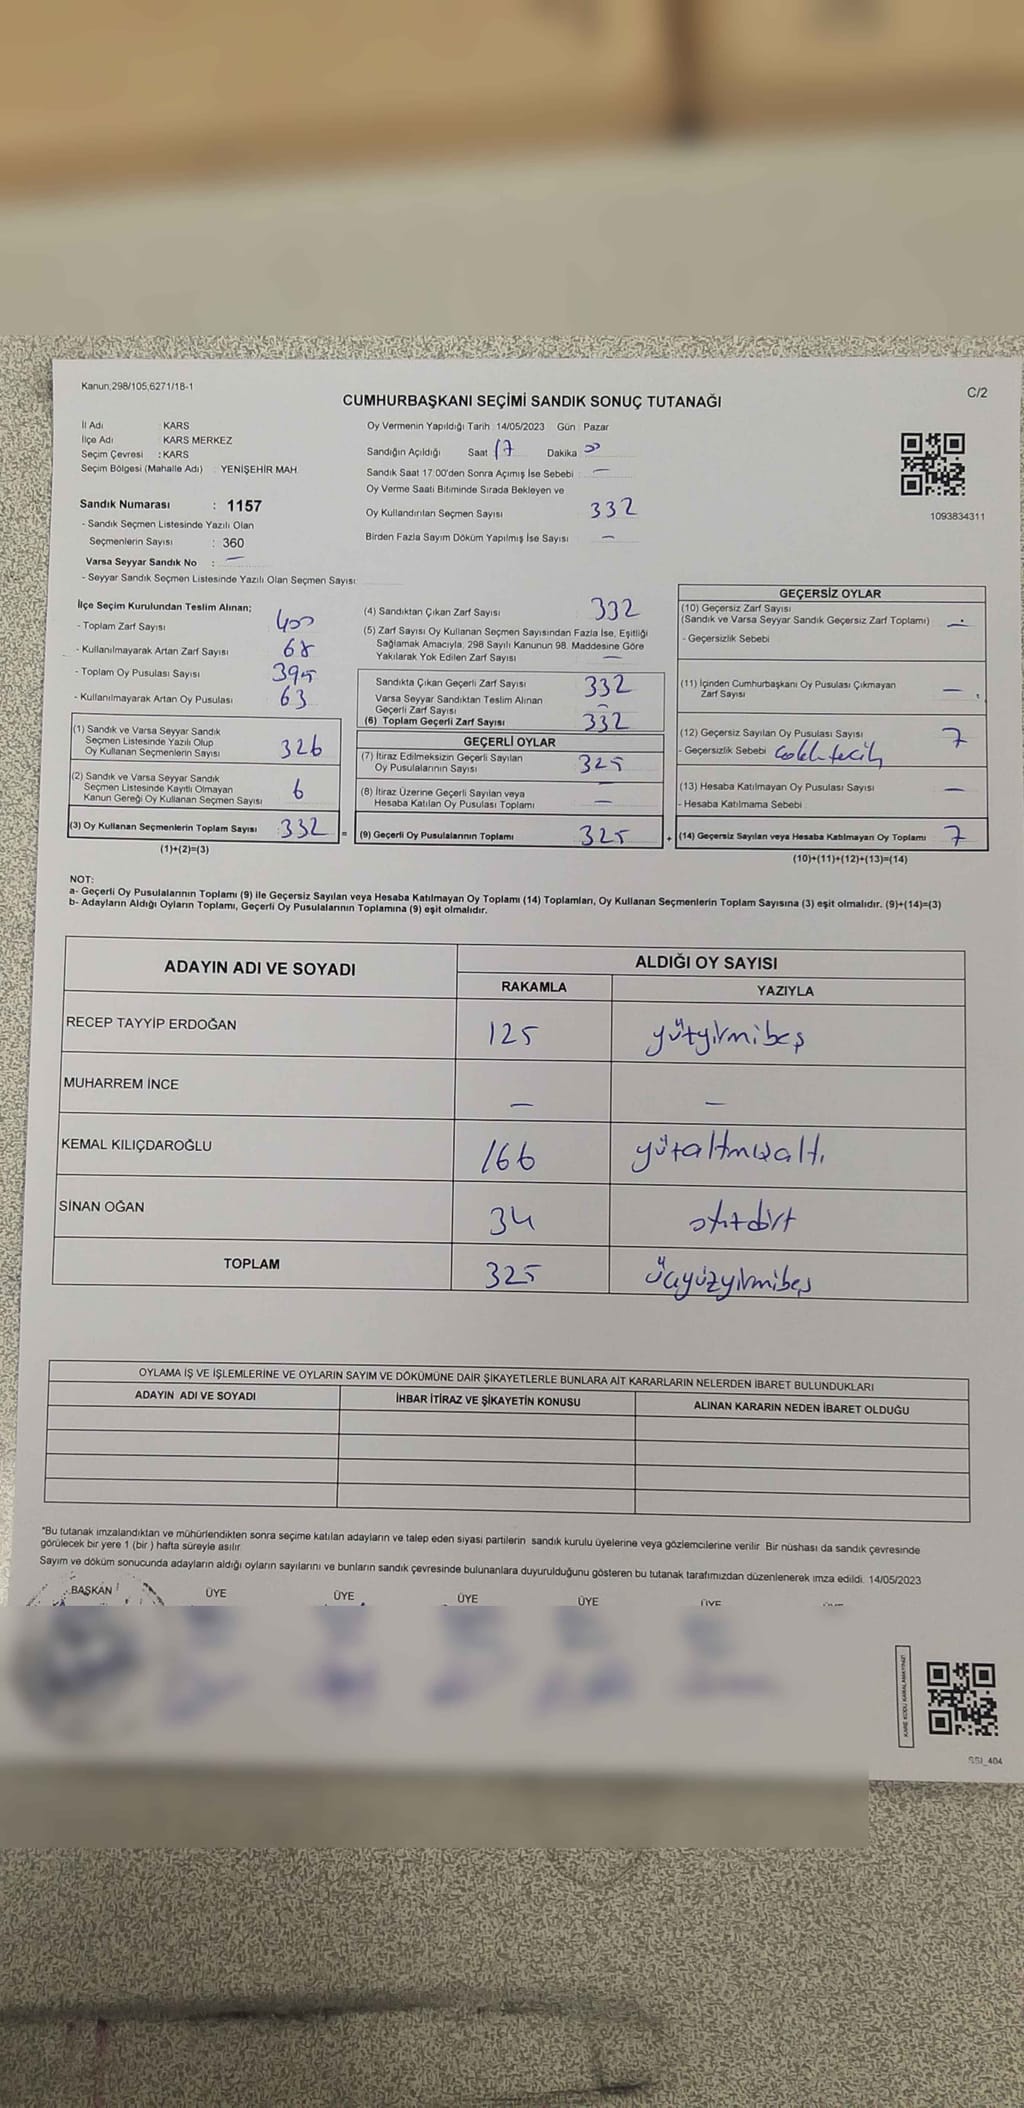 Kanun;298/105,6271/18-1
C/2
CUMHURBAŞKANI SEÇİMİ SANDIK SONUÇ TUTANAĞI
İl Adı : KARS
İlçe Adı : KARS MERKEZ
Seçim Çevresi : KARS
Seçim Bölgesi (Mahalle Adı) : YENİŞEHİR MAH.
Sandık Numarası : 1157
- Sandık Seçmen Listesinde Yazılı Olan
Seçmenlerin Sayısı : 360
Varsa Seyyar Sandık No : —
- Seyyar Sandık Seçmen Listesinde Yazılı Olan Seçmen Sayısı:
Oy Vermenin Yapıldığı Tarih : 14/05/2023 Gün : Pazar
Sandığın Açıldığı Saat 17 Dakika 00
Sandık Saat 17:00'den Sonra Açımış İse Sebebi : —
Oy Verme Saati Bitiminde Sırada Bekleyen ve
Oy Kullandırılan Seçmen Sayısı 332
Birden Fazla Sayım Döküm Yapılmış İse Sayısı —
1093834311
İlçe Seçim Kurulundan Teslim Alınan;
- Toplam Zarf Sayısı 400
- Kullanılmayarak Artan Zarf Sayısı 68
- Toplam Oy Pusulası Sayısı 395
- Kullanılmayarak Artan Oy Pusulası 63
(1) Sandık ve Varsa Seyyar Sandık
Seçmen Listesinde Yazılı Olup
Oy Kullanan Seçmenlerin Sayısı 326
(2) Sandık ve Varsa Seyyar Sandık
Seçmen Listesinde Kayıtlı Olmayan
Kanun Gereği Oy Kullanan Seçmen Sayısı 6
(3) Oy Kullanan Seçmenlerin Toplam Sayısı : 332 =
(1)+(2)=(3)
(4) Sandıktan Çıkan Zarf Sayısı 332
(5) Zarf Sayısı Oy Kullanan Seçmen Sayısından Fazla İse, Eşitliği
Sağlamak Amacıyla, 298 Sayılı Kanunun 98. Maddesine Göre
Yakılarak Yok Edilen Zarf Sayısı —
Sandıkta Çıkan Geçerli Zarf Sayısı 332
Varsa Seyyar Sandıktan Teslim Alınan
Geçerli Zarf Sayısı —
(6) Toplam Geçerli Zarf Sayısı 332
GEÇERLİ OYLAR
(7) İtiraz Edilmeksizin Geçerli Sayılan
Oy Pusulalarının Sayısı 325
(8) İtiraz Üzerine Geçerli Sayılan veya
Hesaba Katılan Oy Pusulası Toplamı —
(9) Geçerli Oy Pusulalarının Toplamı 325 +
GEÇERSİZ OYLAR
(10) Geçersiz Zarf Sayısı
(Sandık ve Varsa Seyyar Sandık Geçersiz Zarf Toplamı) —
- Geçersizlik Sebebi
(11) İçinden Cumhurbaşkanı Oy Pusulası Çıkmayan
Zarf Sayısı —
(12) Geçersiz Sayılan Oy Pusulası Sayısı 7
- Geçersizlik Sebebi
(13) Hesaba Katılmayan Oy Pusulası Sayısı —
- Hesaba Katılmama Sebebi
(14) Geçersiz Sayılan veya Hesaba Katılmayan Oy Toplamı 7
(10)+(11)+(12)+(13)=(14)
NOT:
a- Geçerli Oy Pusulalarının Toplamı (9) ile Geçersiz Sayılan veya Hesaba Katılmayan Oy Toplamı (14) Toplamları, Oy Kullanan Seçmenlerin Toplam Sayısına (3) eşit olmalıdır. (9)+(14)=(3)
b- Adayların Aldığı Oyların Toplamı, Geçerli Oy Pusulalarının Toplamına (9) eşit olmalıdır.
ADAYIN ADI VE SOYADI
ALDIĞI OY SAYISI
RAKAMLA YAZIYLA
RECEP TAYYİP ERDOĞAN 125 yüzyirmibeş
MUHARREM İNCE — —
KEMAL KILIÇDAROĞLU 166 yüzaltmışaltı
SİNAN OĞAN 34 otuzdört
TOPLAM 325 üçyüzyirmibeş
OYLAMA İŞ VE İŞLEMLERİNE VE OYLARIN SAYIM VE DÖKÜMÜNE DAİR ŞİKAYETLERLE BUNLARA AİT KARARLARIN NELERDEN İBARET BULUNDUKLARI
ADAYIN ADI VE SOYADI İHBAR İTİRAZ VE ŞİKAYETİN KONUSU ALINAN KARARIN NEDEN İBARET OLDUĞU
*Bu tutanak imzalandıktan ve mühürlendikten sonra seçime katılan adayların ve talep eden siyasi partilerin sandık kurulu üyelerine veya gözlemcilerine verilir. Bir nüshası da sandık çevresinde
görülecek bir yere 1 (bir) hafta süreyle asılır.
Sayım ve döküm sonucunda adayların aldığı oyların sayılarını ve bunların sandık çevresinde bulunanlara duyurulduğunu gösteren bu tutanak tarafımızdan düzenlenerek imza edildi. 14/05/2023
BAŞKAN ÜYE ÜYE ÜYE ÜYE ÜYE
KARE KODU KARALAMAYINIZ!
SSI_404